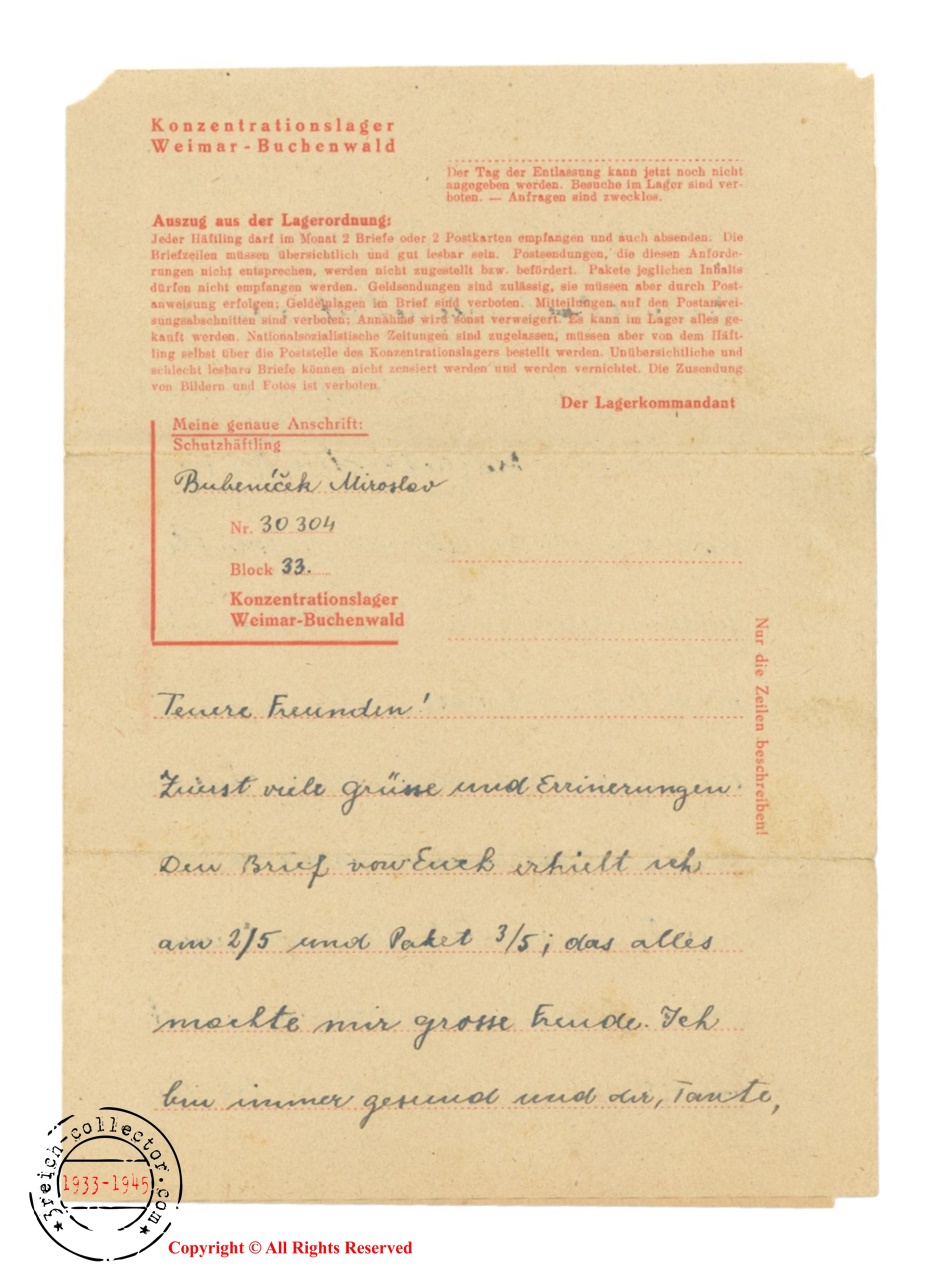 Konzentrationslager
Weimar-Buchenwald
Der Tag der Entlassung kann jetzt noch nicht
angegeben werden. Besuche im Lager sind ver-
boten. — Anfragen sind zwecklos.
Auszug aus der Lagerordnung:
Jeder Häftling darf im Monat 2 Briefe oder 2 Postkarten empfangen und auch absenden. Die
Briefzeilen müssen übersichtlich und gut lesbar sein. Postsendungen, die diesen Anforde-
rungen nicht entsprechen, werden nicht zugestellt bzw. befördert. Pakete jeglichen Inhalts
dürfen nicht empfangen werden. Geldsendungen sind zulässig, sie müssen aber durch Post-
anweisung erfolgen; Geldeinlagen im Brief sind verboten. Mitteilungen auf den Postanwei-
sungsabschnitten sind verboten; Annahme wird sonst verweigert. Es kann im Lager alles ge-
kauft werden. Nationalsozialistische Zeitungen sind zugelassen, müssen aber von dem Häft-
ling selbst über die Poststelle des Konzentrationslagers bestellt werden. Unübersichtliche und
schlecht lesbare Briefe können nicht zensiert werden und werden vernichtet. Die Zusendung
von Bildern und Fotos ist verboten.
Der Lagerkommandant
Meine genaue Anschrift:
Schutzhäftling
Bubeníček Miroslav
Nr. 30 304
Block 33.
Konzentrationslager
Weimar-Buchenwald
Nur die Zeilen beschreiben!
Teuere Freunden!
Zuerst viele grüsse und Errinerungen.
Den Brief von Euch erhielt ich
am 2/5 und Paket 3/5; das alles
machte mir grosse Freude. Ich
bin immer gesund und dir, Tante,
3reich-collector.com
1933-1945
Copyright © All Rights Reserved